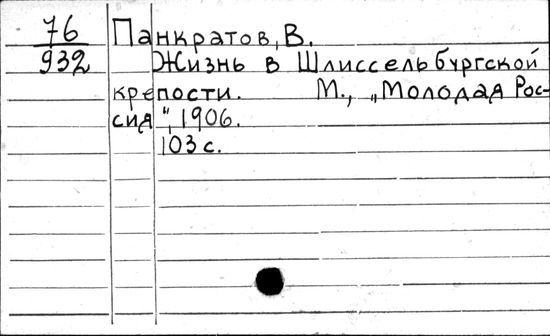 76 Панкратов, В.
932 Жизнь в Шлиссельбургской
крепости. М., „Молодая Рос-
сия“, 1906.
103 с.